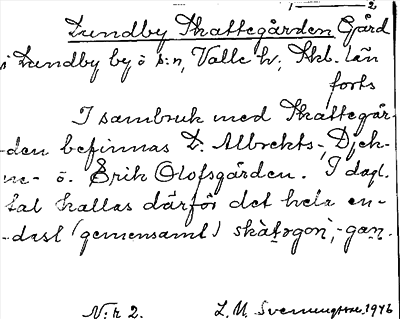 1 — 2
Lundby Skattegården Gård
i Lundby by ö s:n, Valle h; Skb. län
forts
I sambruk med Skattegår-
-den befinnas D. Albrekts-, Djek-
ne- o. Erik Olofsgården. I dagl.
tal kallas därför det hela en-
-dast (gemensamt) skàtəgon, -gan.
N:r 2. L. M. Svenungsson. 1946